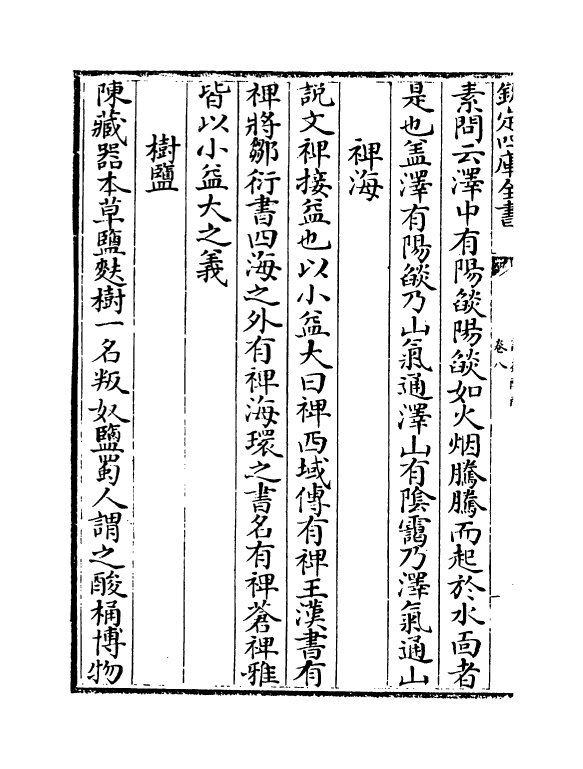 欽定四庫全書
卷八
素問云澤中有陽燄陽燄如火烟騰騰而起於水面者
是也盖澤有陽燄乃山氣通澤山有陰靄乃澤氣通山
裨海
説文裨接益也以小益大曰裨西域傳有裨王漢書有
裨將鄒衍書四海之外有裨海環之書名有裨蒼裨雅
皆以小益大之義
樹鹽
陳藏器本草鹽麩樹一名叛奴鹽蜀人謂之酸桶博物